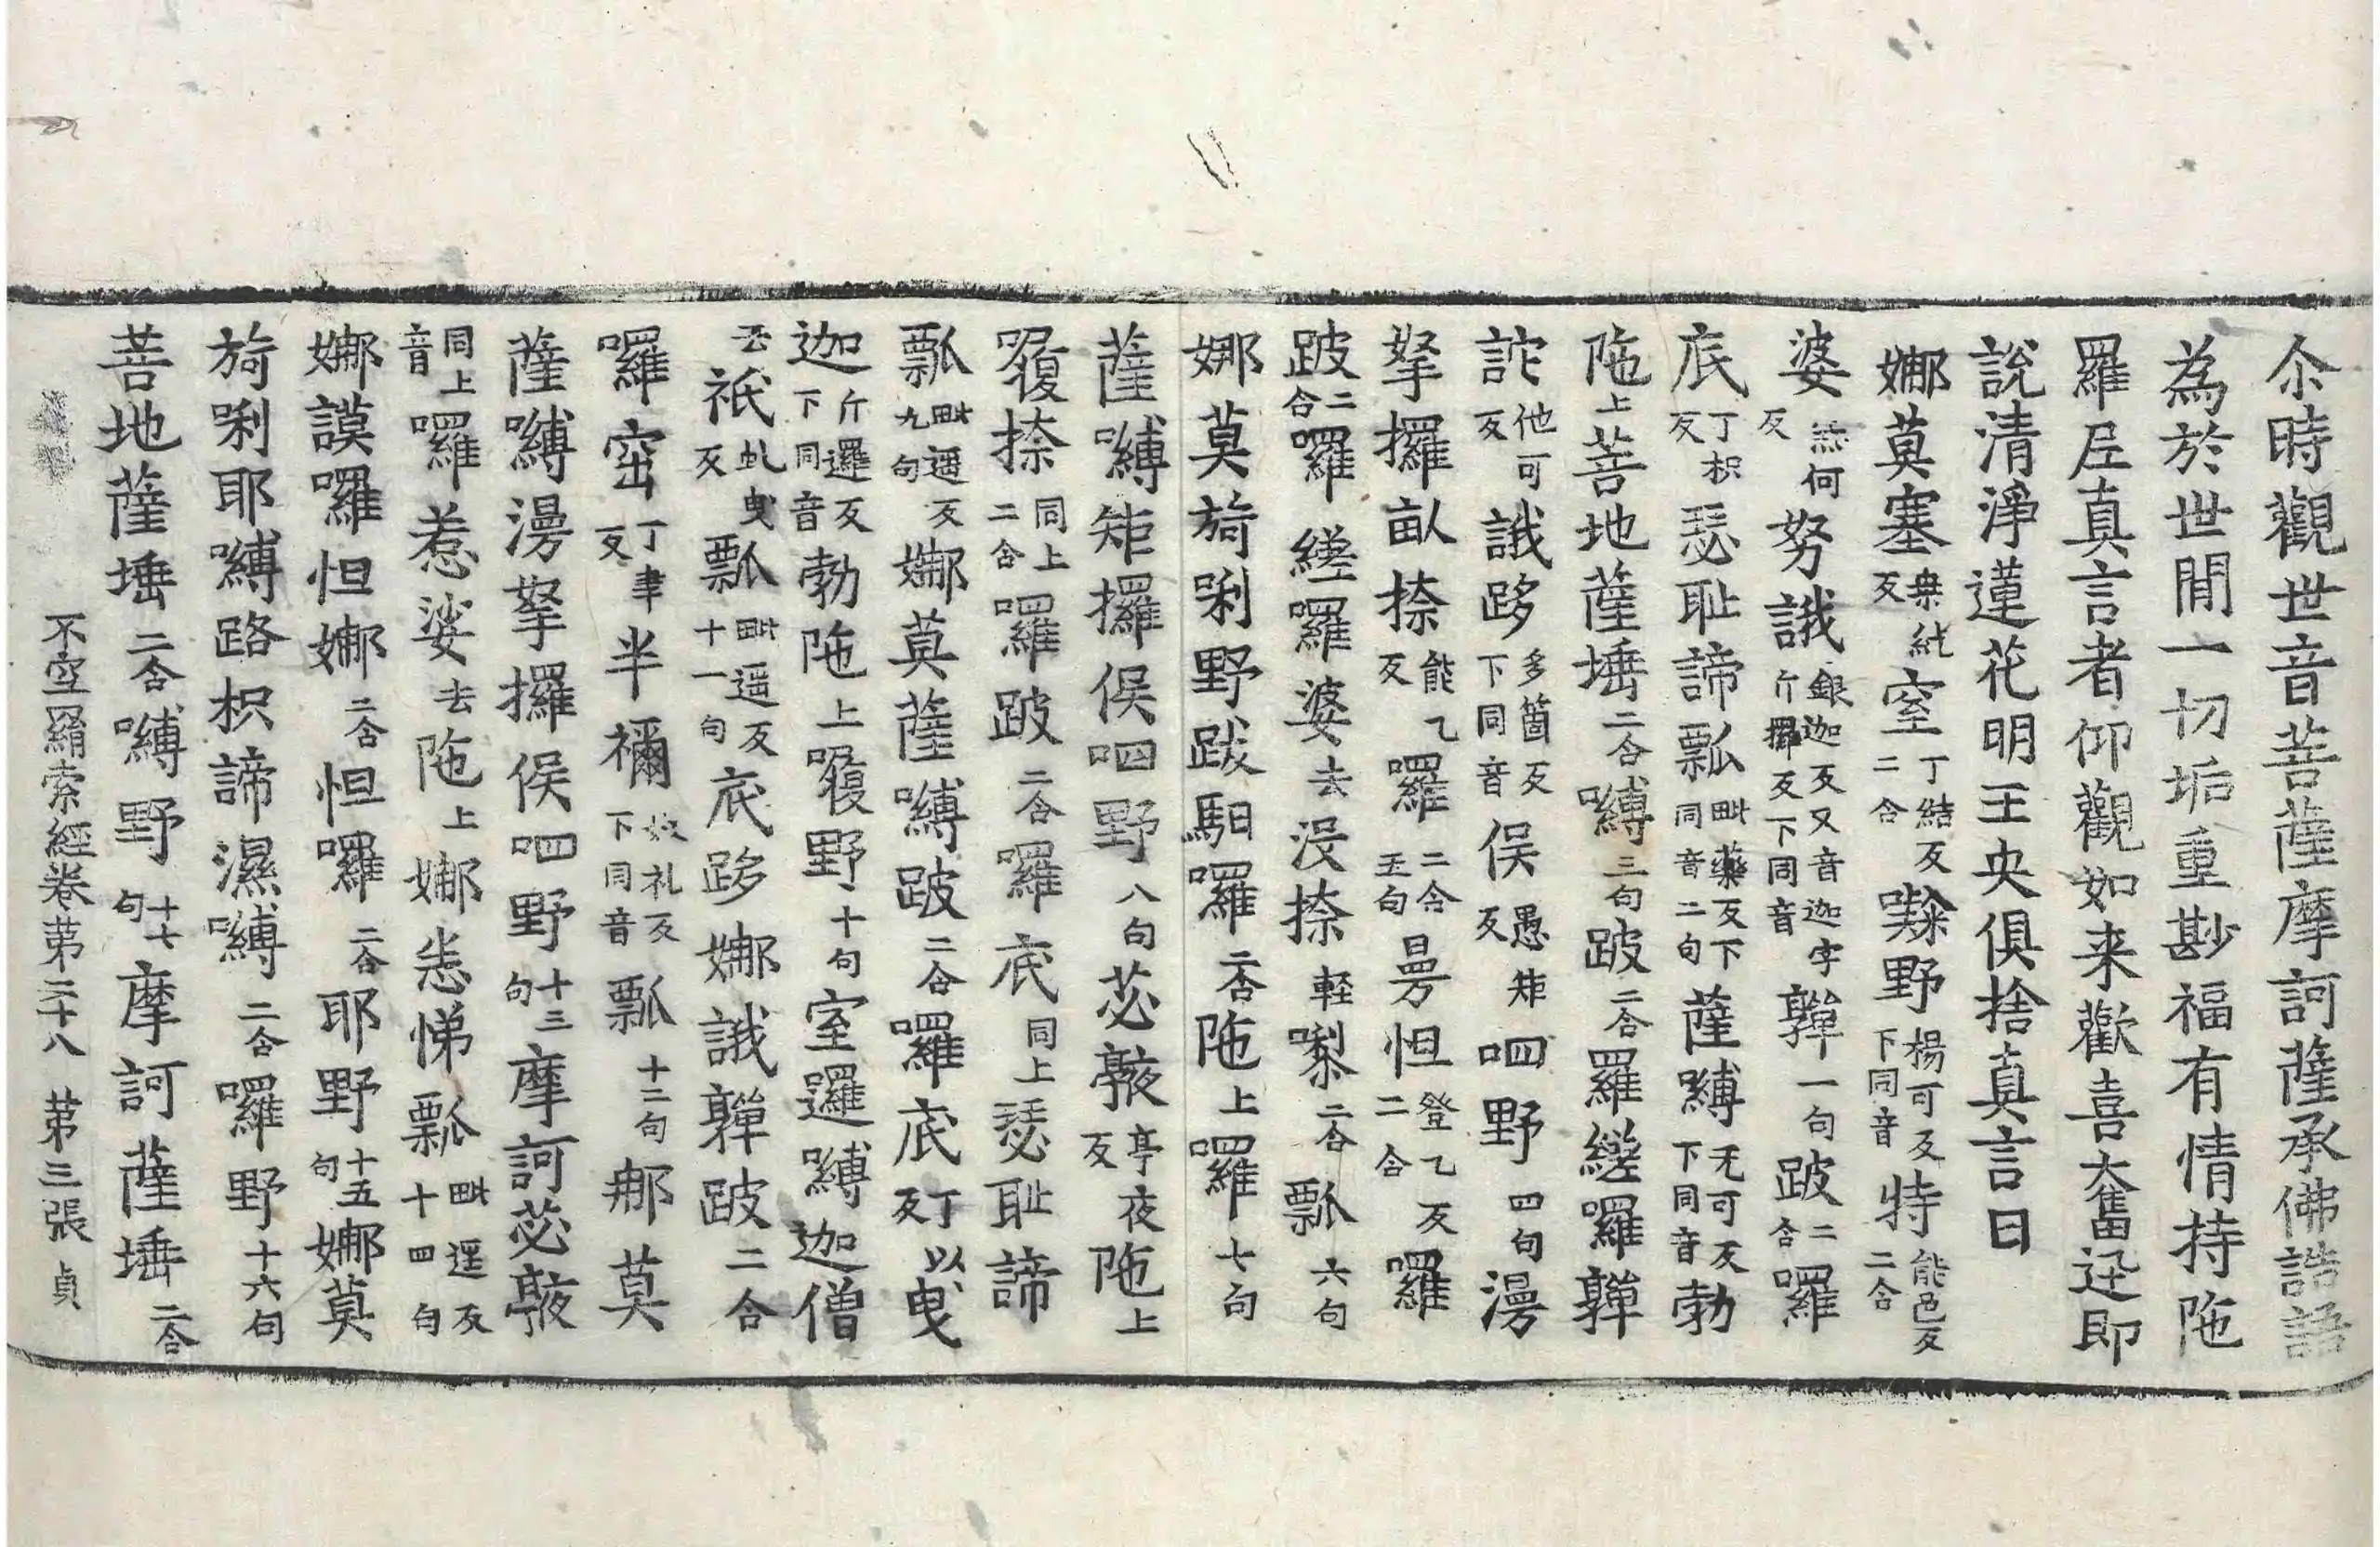 尒時觀世音菩薩摩訶薩承佛誥語
為於世間一切垢重尠福有情持陁
羅𡰱真言者仰觀如来歡喜奮迅即
說清淨蓮花明王央俱捨真言曰
娜莫塞桒紇反窒丁結反二合㘑野楊可反下同音特能邑反二合
婆無何反努誐銀迦反又音迦字斤攞反下同音䩶一句跛二合囉
底丁枳反瑟耻諦瓢毗藥反下同音二句薩嚩无可反下同音勃
陁上菩地薩埵二合嚩三句跛二合羅縒囉䩶
詑他可反誐跢多箇反下同音俁愚矩反呬野四句漫
拏攞畞捺能乙反羅二合五句曼怛登乙反二合囉
跛二合囉縒囉婆去沒捺輕㗚二合瓢六句
娜莫旖唎野跋馹囉二合陁上囉七句
薩嚩矩攞俁呬野八句苾㲉亭夜反陁上
㗶捺同上二合囉跛二合囉底同上瑟耻諦
瓢毗遥反九句娜莫薩嚩跛二合囉底丁以反曳
迦斤邏反下同音勃陁上㗶野十句室邏嚩迦僧
去祇虬曳反瓢毗遥反十一句底跢娜誐䩶跛二合
囉窋丁聿反半禰奴礼反下同音瓢十二句那莫
薩嚩漫拏攞俁呬野十三句摩訶苾㲉
同上音囉惹娑去陁上娜恙悌瓢毗遥反十四句
娜謨囉怛娜二合怛囉二合耶野十五句娜莫
旖唎耶嚩路枳諦濕嚩二合囉野十六句
菩地薩埵二合嚩野十七句摩訶薩埵二合
不空羂索經卷苐二十八 苐三張 貞